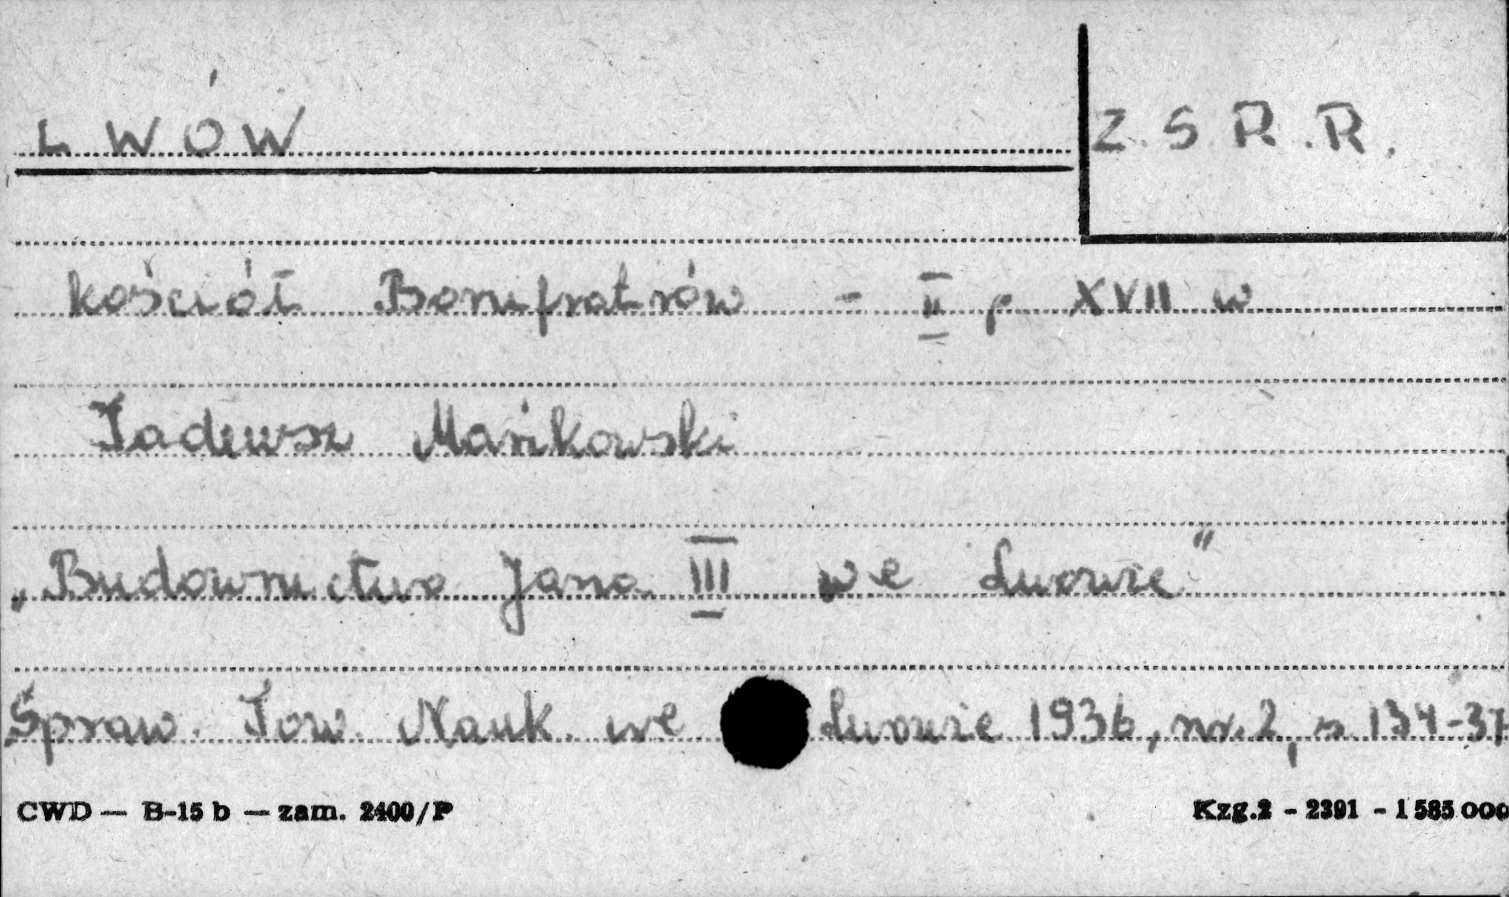 LWÓW
Z.S.R.R.
kościół Bonifratrów - II p XVII w
Tadeusz Mańkowski
„Budownictwo Jana III we Lwowie"
Spraw. Tow. Nauk. we Lwowie 1936, nr. 2, s 134-37
CWD — B-15 b — zam. 2400/P
Kzg.2 - 2391 - 1 585 000